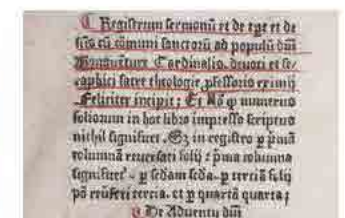 Registrum sermonū et de tpe et de
sctis cū cōmuni sanctorū ad populū dñi
Bonauēture Cardinalis. deuoti et se-
raphici sacre theologie ꝓfessoris eximij
Feliciter incipit: Et Nō ꝙ numerus
foliorum in hoc libro impresso scriptus
nichil significet. Sz in registro ꝑ pmā
columnā reuersati folij: pma columna
significet. ꝑ scdam scda. ꝑ terciā folij
tercia. et ꝑ quartā quarta:
De Aduentu dñi